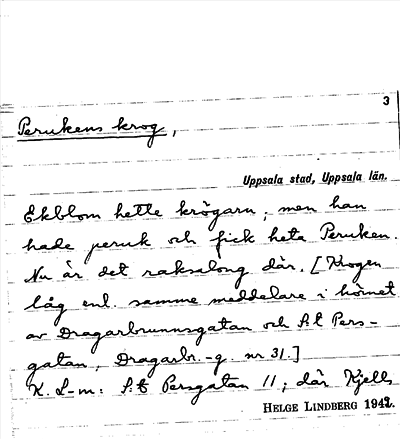 3
Perukens krog,
Uppsala stad, Uppsala län.
Ekblom hette krögarn, men han
hade peruk och fick heta Peruken.
Nu är det raksalong där. [Krogen
låg enl. samme meddelare i hörnet
av Dragarbrunnsgatan och S:t Pers-
gatan, Dragarbr.-g. nr 31.]
K. L-m: S:t Persgatan 11; där Kjells
HELGE LINDBERG 1942.